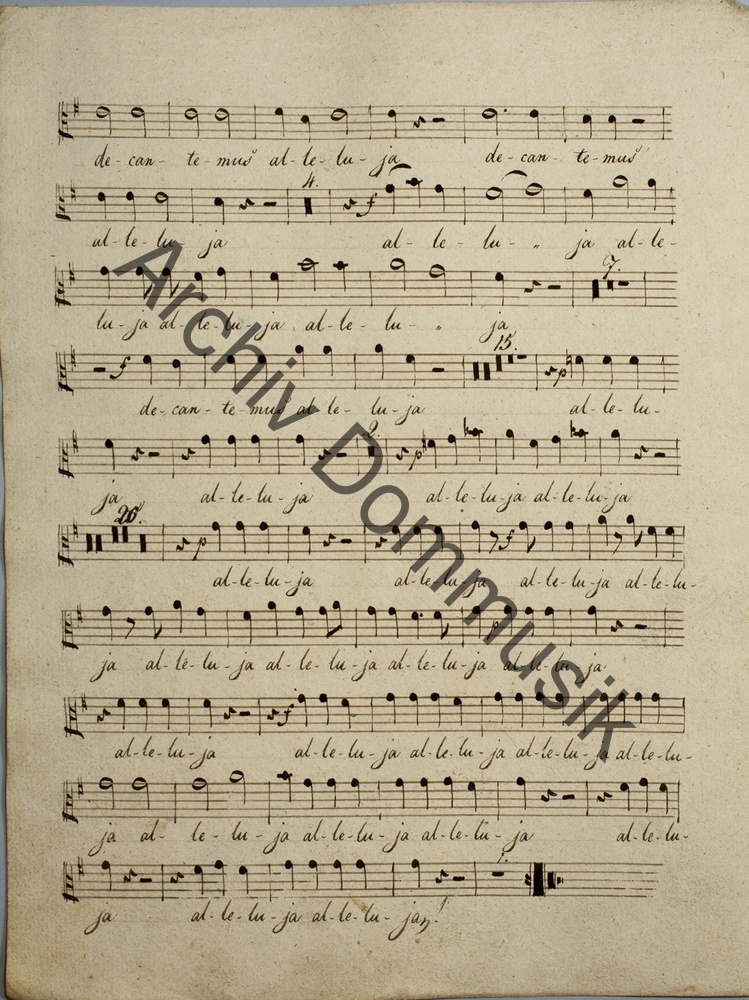 de-can- te-mus al-le-lu-ja de-can- te-mus
4. f
al-le-lu- ja al- le- lu- „ ja al-le-
7.
lu-ja al-le-lu-ja al-le- lu- „ ja
f 15. p
de-can-te-mus al-le-lu-ja al-le-lu-
2. p
ja al-le-lu-ja al-le-lu-ja al-le-lu-ja
26. p f
al-le-lu-ja al-le-lu-ja al-le-lu-ja al-le-lu-
ja al-le-lu-ja al-le-lu-ja al-le-lu-ja al-le-lu-ja
f
al-le-lu-ja al-le-lu-ja al-le-lu-ja al-le-lu-ja al-le-lu-
ja al- le-lu-ja al-le-lu-ja al-le-lu-ja al-le-lu-
1.
ja al-le-lu-ja al-le-lu-ja
Archiv Dommusik